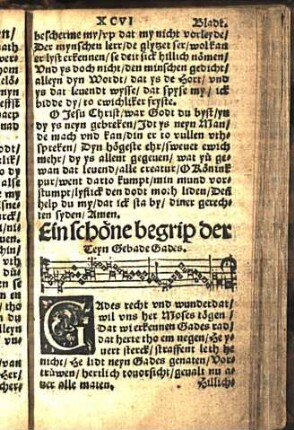 XCVI Bladt.
bescherme my/vp dat my nicht vorleyde/
Der mynschen lerr/de glyßet ser/wol kan
er lyst erkennen/se deit sick hillich nömen/
Vnd ys doch nicht/den minschen gedicht/
alleyn dyn Wordt/dat ys de Hort/vnd
ys dat leuendt wysse/dat spyse my/ick
bidde dy/to ewichliker fryste.
O Jesu Christ/war Godt du byst/yn
dy ys neyn gebreken/Jdt ys neyn Man/
de mach vnd kan/din er to vullen vth
spreken/Dyn högeste ehr/sweuet ewich
mehr/dy ys allent gegeuen/wat yü ge-
wan dat leuend/alle creatur/O Könink
pur/went darto kumpt/min mund vor
stumpt/lyflick den dodt moth liden/Den
help du my/dat ick sta by/diner gerech-
ten syden/Amen.
Ein schöne begrip der
Teyn Gebade Gades.
GAdes recht vnd wunderdat/
wil vns her Moses tögen/
Dat wi erkennen Gades rad/
dat herte tho em negen/He ys
uer sterck/straffent leth he
nicht/He lidt neyn Gades genaten/Vor-
trüwen/hertlich touorsicht/geualt nu a-
uer alle maten.
Hillich-